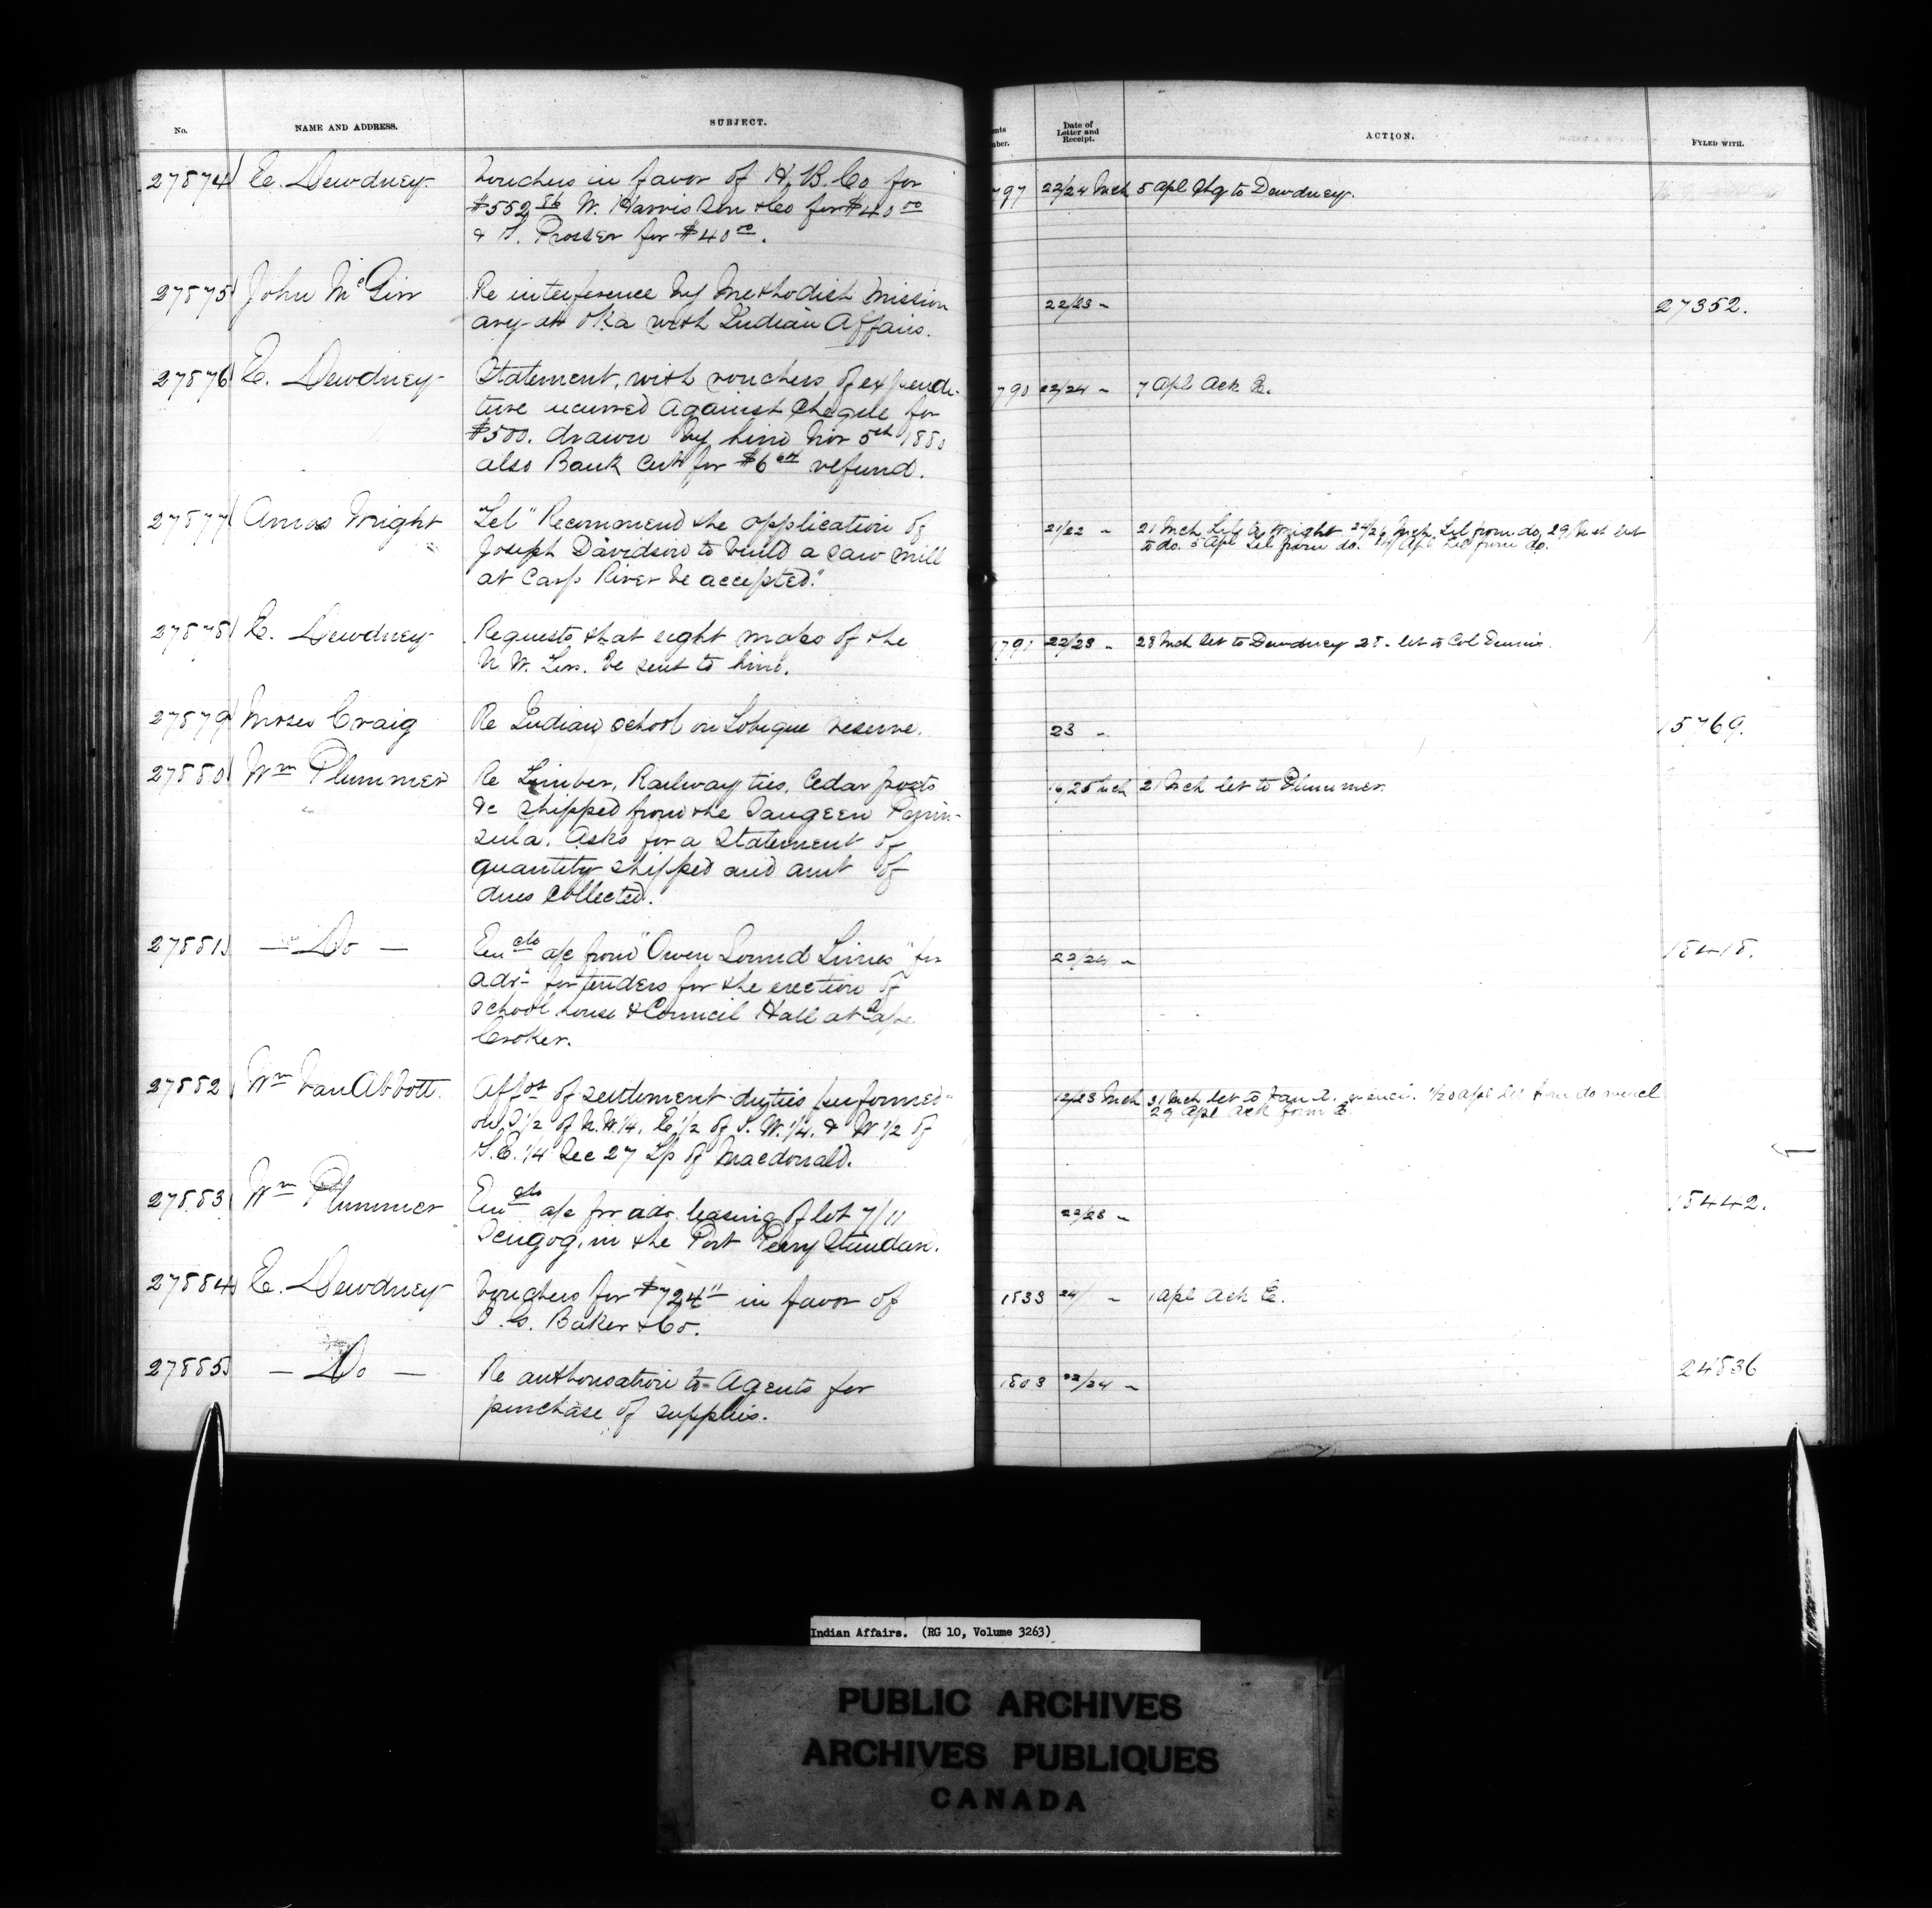 No.
NAME AND ADDRESS.
SUBJECT.
27874 E. Dewdney
Vouchers in favor of H. B. Co for
$552.86 W. Harris Son & Co for $40 00
& S. Prosser for $40 00.
27875 John McGirr
Re interference by Methodist Mission
ary at Oka with Indian Affairs.
27876 E. Dewdney
Statement, with vouchers of expendi-
ture incurred against Cheque for
$500. drawn by him Nov 5th 1880
also Bank Cert for $6 refund.
27877 Amos Wright
"Tel" Recommend the application of
Joseph Davidson to build a saw mill
at Carp River be accepted."
27878 E. Dewdney
Requests that eight maps of the
N W. Terr. be sent to him.
27879 Moses Craig
Re Indian school on Tobique reserve.
27880 Wm Plummer
Re Timber, Railway ties, Cedar posts
&c shipped from the Saugeen Penin-
sula. Asks for a Statement of
quantity shipped and amt of
dues collected.
27881 — Do —
Encls a/c from "Owen Sound Times" for
advt for tenders for the erection of
school house & Council Hall at Cape
Croker.
27882 Wm Van Abbott.
Affot of settlement duties performed
on S 1/2 of N.W. 1/4, E 1/2 of S. W. 1/4. & W 1/2 of
S.E. 1/4 Sec 27 Tp of Macdonald.
27883 Wm Plummer
Encls a/c for adv. leasing of lot 7/11
Scugog, in the Port Perry Standard.
27884 E. Dewdney
Vouchers for $724 11 in favor of
I. G. Baker & Co.
27885 — Do —
Re authorisation to Agents for
purchase of supplies.
nts
ber.
Date of
Letter and
Receipt.
ACTION.
FYLED WITH.
797 22/24 Mch 5 Apl Chq to Dewdney.
22/23 " 27352.
790 22/24 " 7 Apl Ack E.
21/22 " 21 Mch Tel A. Wright 24/26 Mch Tel from do, 29 Mch let
to do. 5 Apl Tel from do. Apl Tel from do.
791 22/23 " 28 Mch let to Dewdney 28 " let to Col Dennis.
23 " 15769.
16/25 Mch 21 Mch let to Plummer.
22/24 " 18418.
12/23 Mch 31 Mch let to Van A. Apl let from do
29 Apl Ack form E.
22/23 " 18442.
1833 24/ " 1 Apl Ack E.
1803 22/24 " 24836
Indian Affairs. (RG 10, Volume 3263)
PUBLIC ARCHIVES
ARCHIVES PUBLIQUES
CANADA